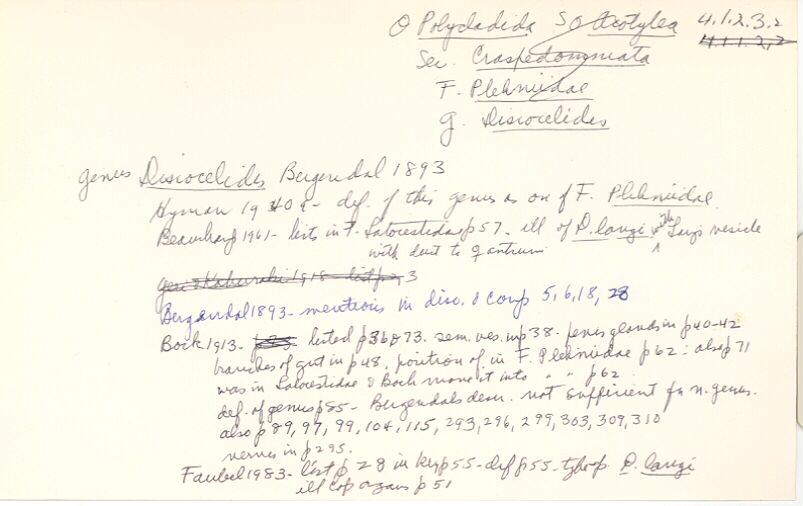 O Polycladida SO Acotylea 4.1.2.3.2
4.1.1.2.2
Sec. Craspedommata
F. Plehniidae
g. Discocelides
genus Discocelides Bergendal 1893
Hyman 1940a - def. of this genus as one of F. Plehniidae
Beauchamp 1961 - lists in F. Latocestidae p57 - ill of D. langi with Lang's vesicle
with duct to ♀ antrum
1918 - list p 3
Bergendal 1893 - mentions in disc. & comp 5, 6, 18, 28
Bock 1913 - listed p36 & 73. sem. ves. in p38 - penis glands in p40-42
branches of gut in p48. position of in F. Plehniidae p62 : also p71
was in Latocestidae & Bock moved it into " " p62
def. of genus p85 - Bergendals descr. not sufficient for n. genus.
also p89, 97, 99, 104, 115, 293, 296, 299, 303, 309, 310
nerves in p295.
Faubel 1983 - list p28 in key p55 - def p55 - type sp. D. langi
ill cop organs p51